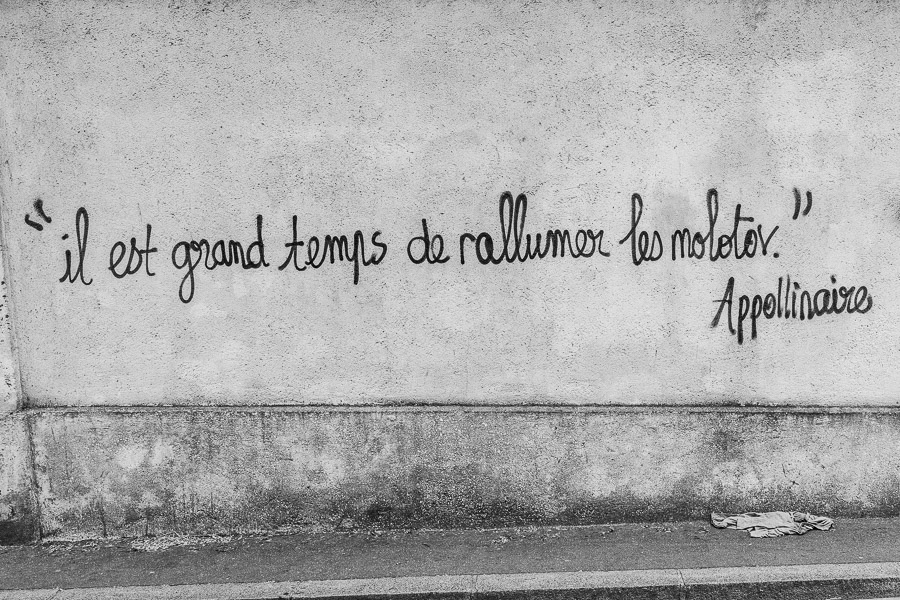 “il est grand temps de rallumer les molotov.”
Appollinaire